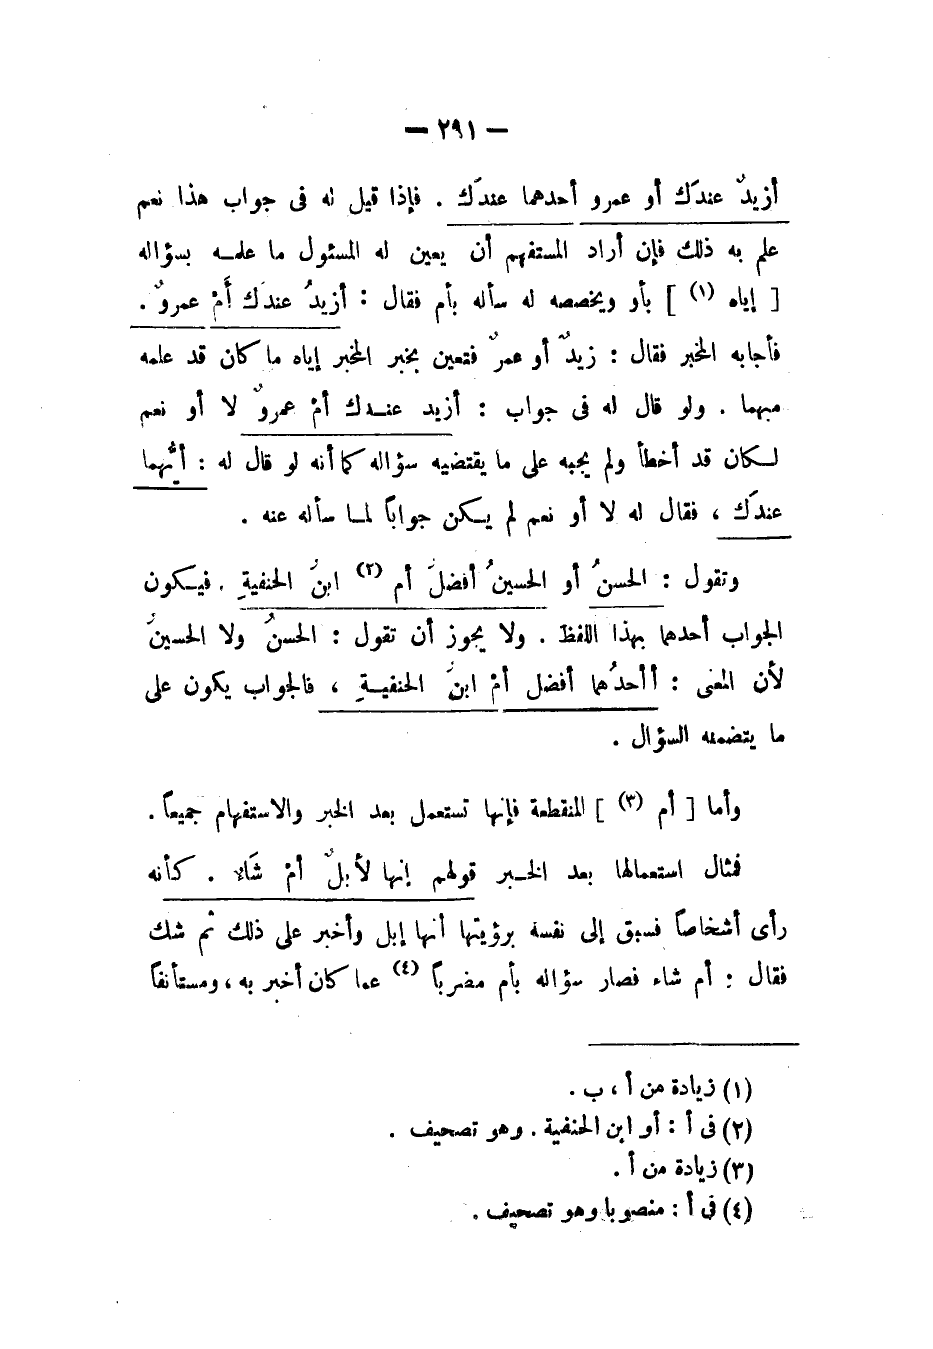 — ٢٩١ —
أزيدٌ عندَك أو عمرو أحدهما عندَك . فإذا قيل له فى جواب هذا نعم
علم به ذلك فإن أراد المستفهم أن يعين له المسئول ما علمـه بسؤاله
[ إياه (١) ] بأو ويخصصه له سأله بأم فقال : أزيدُ عندَك أَمْ عمروٌ .
فأجابه المخبر فقال : زيدٌ أو عمرٌ فتعين بخبر المخبر إياه ما كان قد علمه
مبهما . ولو قال له فى جواب : أزيد عنـدك أمْ عمروٌ لا أو نعم
لـكان قد أخطأ ولم يجبه على ما يقتضيه سؤاله كما أنه لو قال له : أيُّهما
عندَك ، فقال له لا أو نعم لم يـكن جواباً لمـا سأله عنه .
وتقول : الحسنُ أو الحسينُ أفضلَ أم (٢) ابنُ الحنفيةِ . فيـكون
الجواب أحدهما بهذا اللفظ . ولا يجوز أن تقول : الحسنُ ولا الحسينُ
لأن المعنى : أأحدُهما أفضل أمْ ابنُ الحنفيـةِ ، فالجواب يكون على
ما يتضمنه السؤال .
وأما [ أم (٣) ] المنقطعة فإنها تستعمل بعد الخبر والاستفهام جميعاً .
فمثال استعمالها بعد الخـبر قولهم إنها لأبلٌ أمْ شَاء . كأنه
رأى أشخاصاً فسبق إلى نفسه برؤيتها أنها إبل وأخبر على ذلك ثم شك
فقال : أم شاء فصار سؤاله بأم مضرباً (٤) عما كان أخبر به ، ومستأنفاً
(١) زيادة من أ ، ب .
(٢) فى أ : أو ابن الحنفية . وهو تصحيف .
(٣) زيادة من أ .
(٤) فى أ : منصوبا وهو تصحيف .